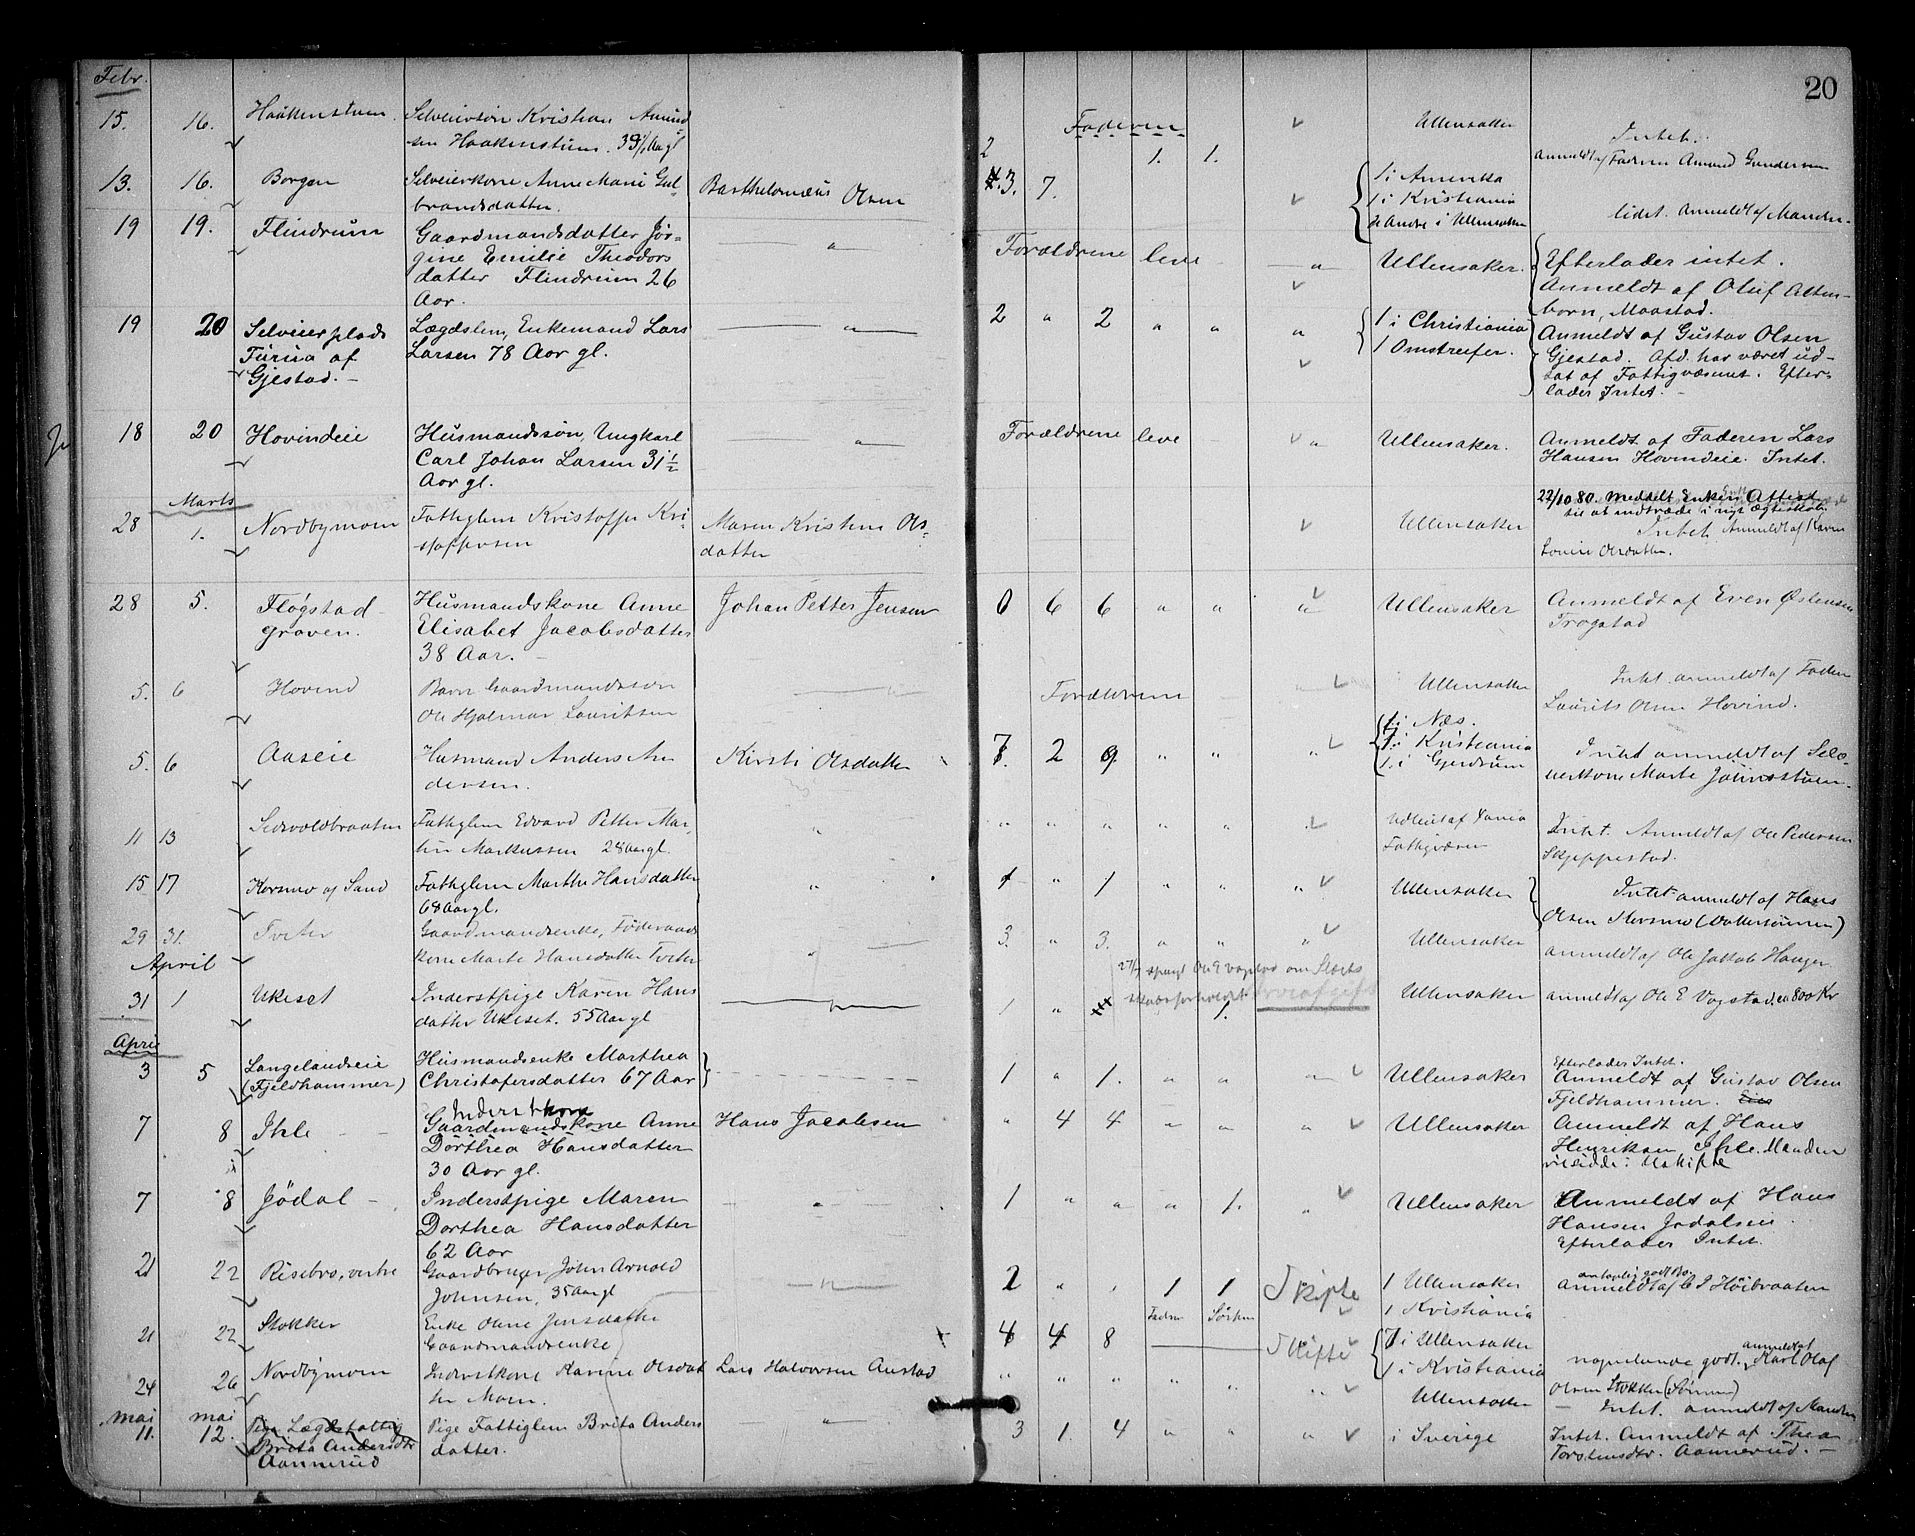 20
Febr.
15. 16. Haakenstuen Selveiersøn Kristian Amund
sen Haakenstuen. 39 1/2 Aar gl
Faderen
2 1. 1.
Ullensaker
Intet.
anmeldt af Faderen Amund Gundersen
13. 16. Borgen Selveierkone Anne Marie Gul-
brandsdatter.
Barthelomæus Olsen
3. 7.
1 i Amerika
1 i Kristiania
2 Andre i Ullensaker
lidet. anmeldt af Manden.
19 19. Flindrum Gaardmandsdatter Jør-
gine Emilie Theodors
datter Flindrum 26
Aar.
"
Forældrene leve " Ullensaker.
Efterlader intet.
Anmeldt af Oluf Alten-
born, Maastad.
19 20 Selveierplads
Furua af
Gjestad. -
Lægdslem, Enkemand Lars
Larsen 78 Aar gl.
"
2 " 2 " " "
1 i Christiania
1 Omstreifer.
Anmeldt af Gustav Olsen
Gjestad. Afd. har været ud-
sat af Fattigvæsenet. Efter-
lader Intet. -
18 20 Hovindeie Husmandssøn, Ungkarl
Carl Johan Larsen 31 1/2
Aar gl.
"
Forældrene leve " Ullensaker.
Anmeldt af Faderen Lars
Hansen Hovindeie. Intet.
Marts
28 1. Nordbymoen Fattiglem Kristoffer Kri-
stoffersen
Maren Kristine Ols-
datter
Ullensaker
22/10 80. meddelt Enken Attest
til at indtræde i nyt Ægteskab.
Intet Anmeldt af Karen
Lovise Olsdatter.
28 5. Fløgstad
graven.
Husmandskone Anne
Elisabet Jacobsdatter
38 Aar. -
Johan Petter Jensen
0 6 6 " " " Ullensaker
Anmeldt af Even Østensen
Trøgstad
5. 6 Hovind Barn Gaardmandssøn
Ole Hjalmar Lauritsen
"
Forældrene " Ullensaker
Intet anmeldt af Faderen
Laurits Olsen Hovind.
5. 6 Aaseie Husmand Anders An
dersen.
Kirsti Olsdatter
7. 2 9 " " "
1 i Næs.
1 i Kristiania
1 i Gjerdrum
Intet anmeldt af Selv-
eierkone Marte
11 13 Sedvoldbraaten Fattiglem Edvard Petter Mar-
tin Markussen 28 aar gl.
"
" " " " " "
Fattigvæsen
Intet. Anmeldt af Ole Pedersen
Skjeppestad.
15 17 Korsmo af Sand Fattiglem Marthe Hansdatter
68 Aar gl.
"
1 " 1 " " " Ullensaker
Intet anmeldt af Hans
Olsen Korsmo (Dattersønnen)
29 31. Tveter Gaardmandsenke, Føderaads
kone Marte Hansdatter Tveter
"
3. " 3. " " " Ullensaker
anmeldt af Ole Jakob Hauger
April
31 1 Ukeset Inderstpige Karen Hans
datter Ukeset. 55 Aar gl
"
1 " 1. Arveafgift
Ullensaker anmeldt af Ole E Vogstad. ca 800 Kr
April
3 5 Langelandseie
(Fjeldhammer)
Husmandsenke Marthea
Christofersdatter 67 Aar
1 " 1. " " " Ullensaker
Efterlader Intet.
Anmeldt af Gustav Olsen
Fjeldhammer.
7 8 Ihle - - Inderstkone
Gaardmandskone Anne
Dorthea Hansdatter
30 Aar gl.
Hans Jacobsen
" 4 4 " " " Ullensaker
Anmeldt af Hans
Henriksen Ihle. Manden
vil sidde i Uskifte
7 8 Jødal - Inderstpige Maren
Dorthea Hansdatter
62 Aar
"
1 " " " 1. " Ullensaker
Anmeldt af Hans
Hansen Jødalseie.
Efterlader Intet.
21 22 Risebro, vestre Gaardbruger John Arnold
Johnsen, 35 Aar gl
"
2 " " 1 1 Skifte
1 Ullensaker
1 Kristiania
antagelig godt Bo
anmeldt af C J Høibraaten
Faderen Søsken
21 22 Stokker Enke Oline Jensdatter
Gaardmandsenke
4 4 8 Skifte
7 i Ullensaker
1 i Kristiania
nogenlunde godt. anmeldt af Karl Olaf
Olsen Stokker (Sønnen)
24 26 Nordbymoen Inderstkone Karine Olsdat
ter Moen.
Lars Halvorsen Austad
" " " " " " Ullensaker
- Intet. anmeldt af Manden
mai mai
11. 12. Pige Lægdsfattig
Brita Andersdtr
Aannerud
Pige Fattiglem Brita Anders
datter.
"
3 1. 4 " " " i Sverige
Intet. Anmeldt af Thea
Torstensdtr. Aannerud. -